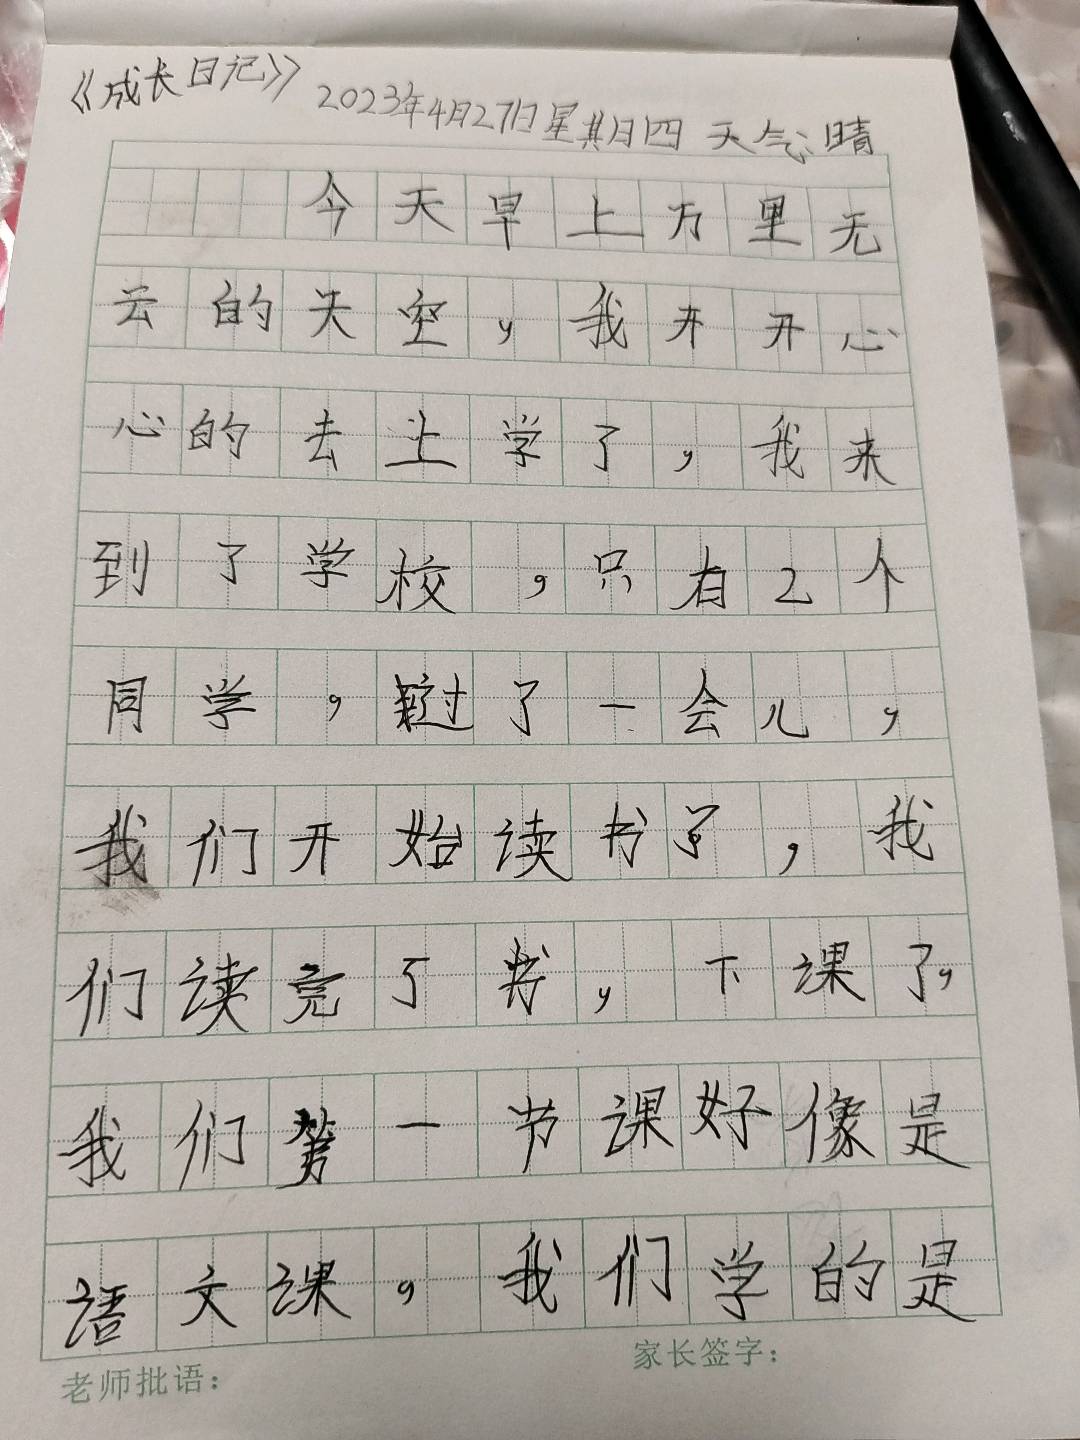 《成长日记》 2023年4月27日星其日四 天气:晴
今天早上万里无
云的天空，我开开心
心的去上学了，我来
到了学校，只有2个
同学，过了一会儿，
我们开始读书了，我
们读完了书，下课了，
我们第一节课好像是
语文课，我们学的是
老师批语： 家长签字：